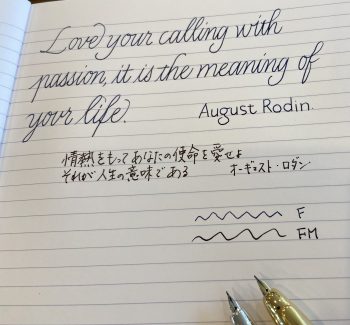 Love your calling with
passion, it is the meaning of
your life
August Rodin.
情熱をもってあなたの使命を愛せよ
それが人生の意味である
オーギュスト・ロダン
F
FM